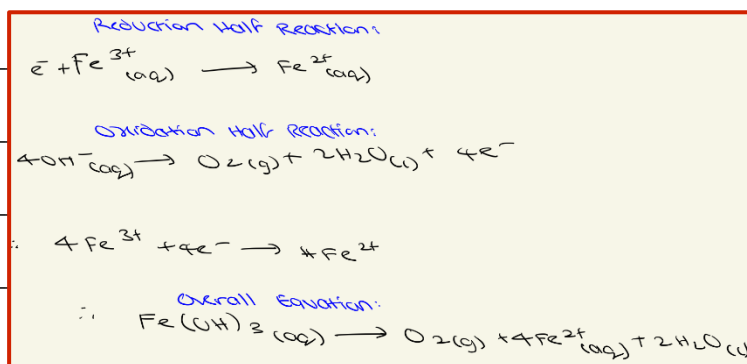 Reduction Half Reaction:
e⁻ + Fe³⁺(aq) → Fe²⁺(aq)
Oxidation Half Reaction:
4OH⁻(aq) → O2(g) + 2H2O(l) + 4e⁻
∴ 4Fe³⁺ + 4e⁻ → 4Fe²⁺
Overall Equation:
∴ Fe(OH)3(aq) → O2(g) + 4Fe²⁺(aq) + 2H2O(l)